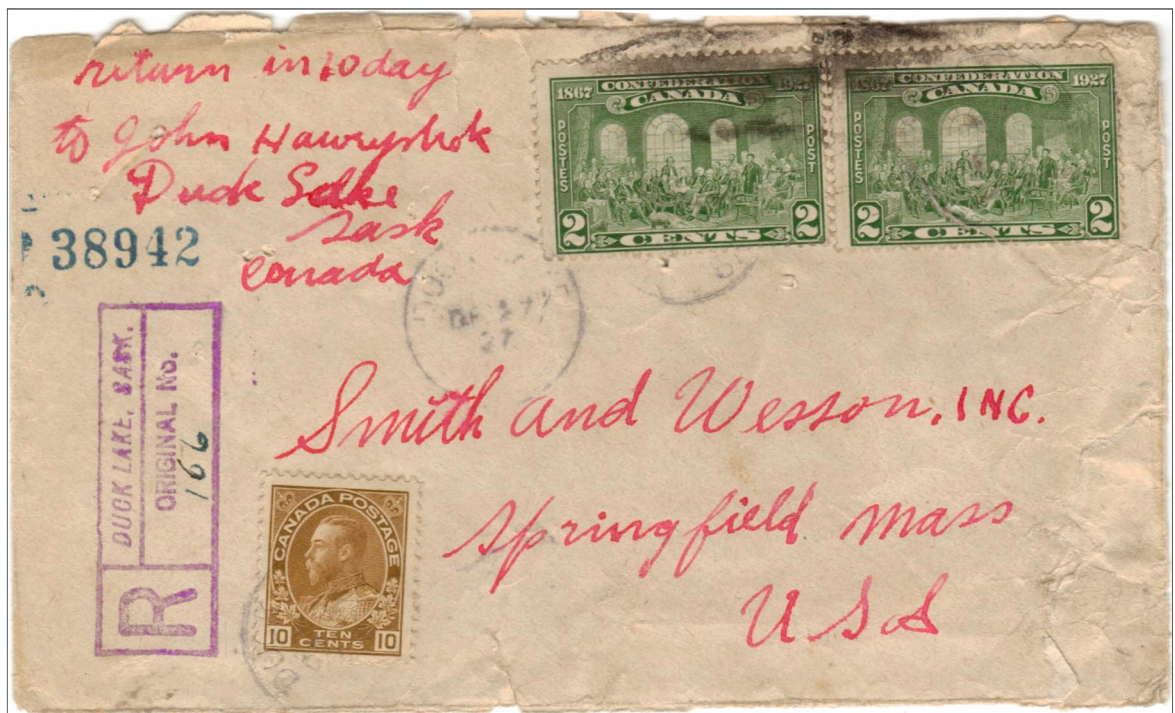 return in 10 day
to John Hawryshok
Duck Lake
Sask
Canada
38942
DUCK LAKE, SASK.
ORIGINAL No.
166
R
1867 CONFEDERATION 1927
CANADA
POSTES
POST
2 CENTS 2
1867 CONFEDERATION 1927
CANADA
POSTES
POST
2 CENTS 2
27
Smith and Wesson, INC.
Springfield Mass
USA
CANADA POSTAGE
10 TEN CENTS 10